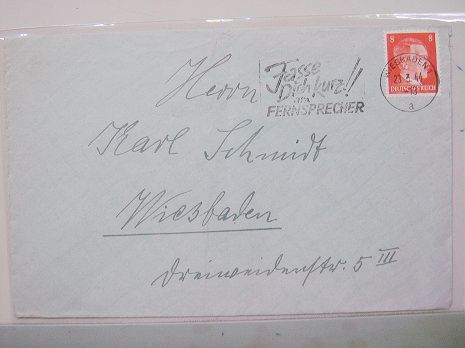 8 8
DEUTSCHES REICH
WIESBADEN
21.3.44
a
Fasse
Dich kurz!!
am
FERNSPRECHER
Herrn
Karl Schmidt
Wiesbaden
Dreiweidenstr. 5 III